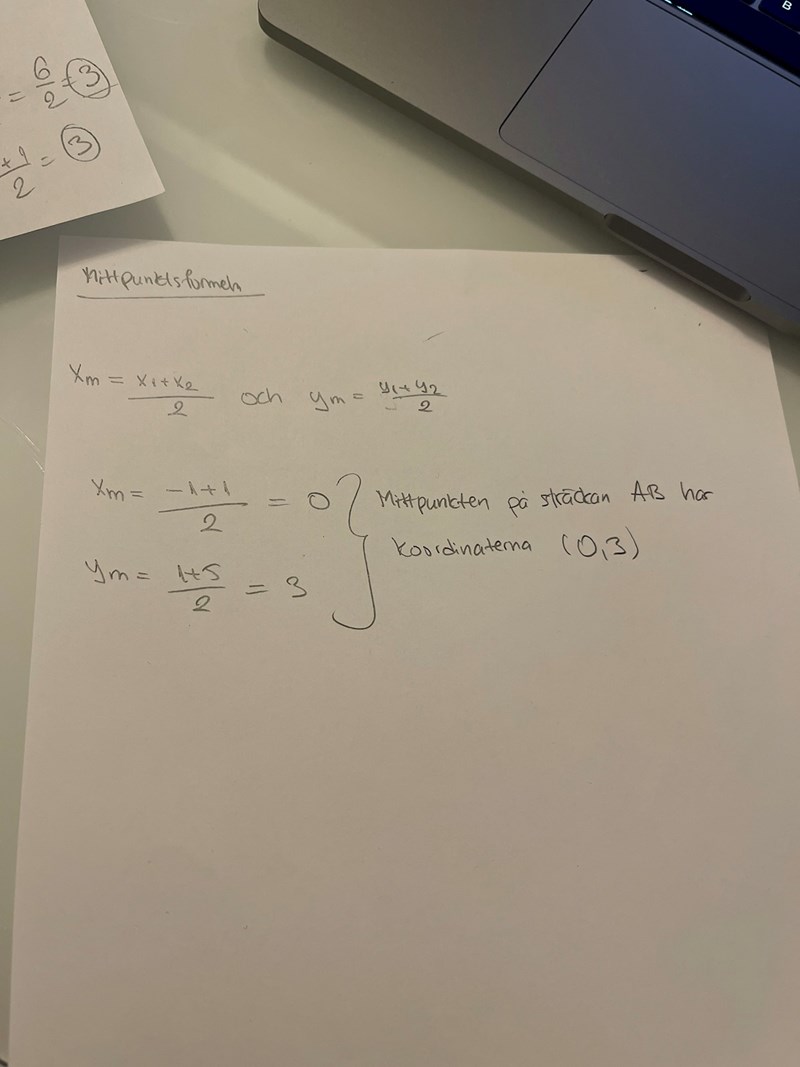 = 6/2 = 3
+1/2 = 3
B
Mittpunktsformeln
Xm = x1+x2/2 och ym = y1+y2/2
Xm = -1+1/2 = 0 } Mittpunkten på sträckan AB har
koordinaterna (0,3)
ym = 1+5/2 = 3